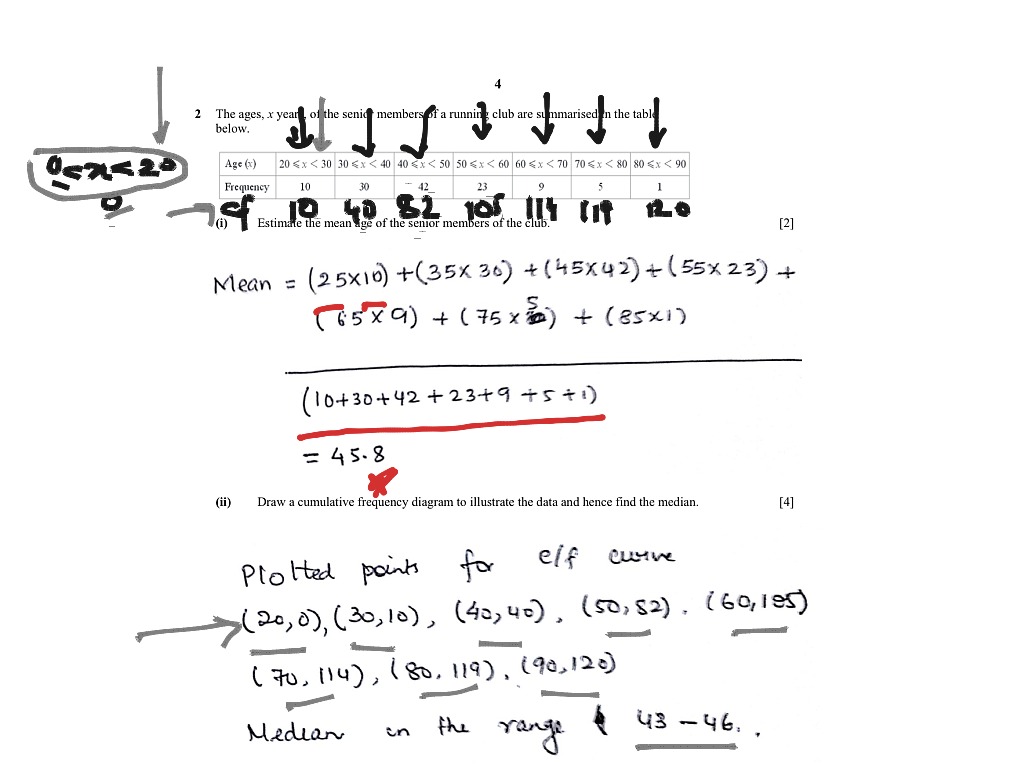 4
2 The ages, x years, of the senior members of a running club are summarised in the table
below.
0≤x<20
Age (x) 20 ⩽ x < 30 30 ⩽ x < 40 40 ⩽ x < 50 50 ⩽ x < 60 60 ⩽ x < 70 70 ⩽ x < 80 80 ⩽ x < 90
Frequency 10 30 42 23 9 5 1
0 cf 10 40 82 105 114 119 120
(i) Estimate the mean age of the senior members of the club. [2]
Mean = (25x10) + (35x30) + (45x42) + (55x23) +
(65x9) + (75x5) + (85x1)
(10+30+42+23+9+5+1)
= 45.8
(ii) Draw a cumulative frequency diagram to illustrate the data and hence find the median. [4]
Plotted points for c/f curve
(20,0), (30,10), (40,40), (50,82). (60,105)
(70,114), (80,119), (90,120)
Median in the range 43 – 46.